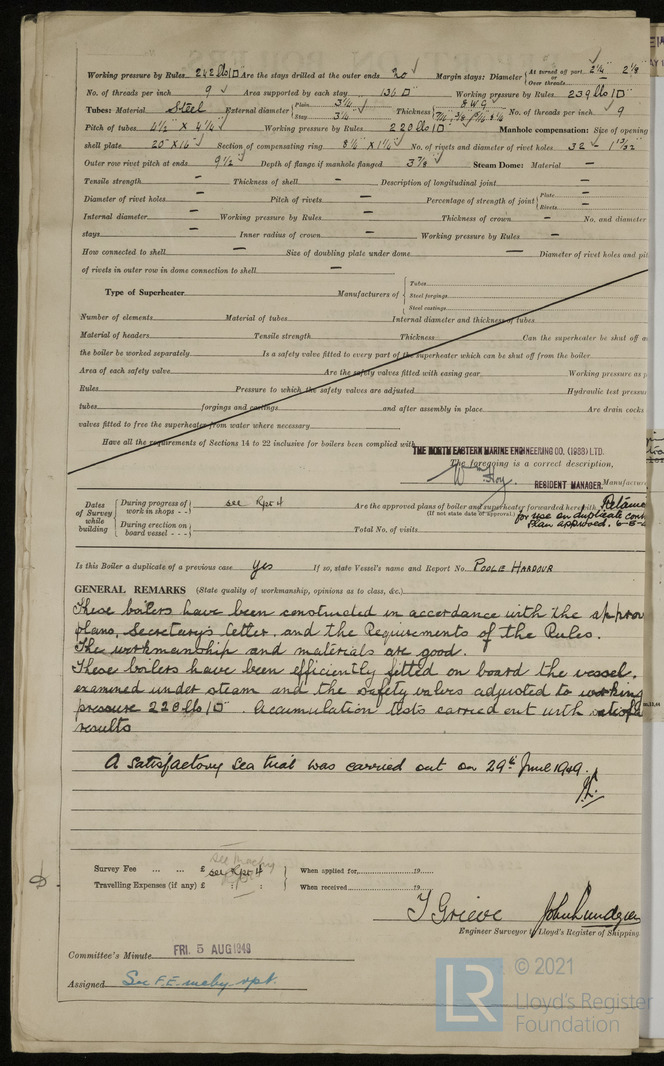 Working pressure by Rules 242 lbs/□" Are the stays drilled at the outer ends No Margin stays: Diameter { At turned off part 2 1/4" 2 1/8 Over threads
No. of threads per inch 9 Area supported by each stay 136 □" Working pressure by Rules 239 lbs/□"
Tubes: Material Steel External diameter { Plain 3 1/4" Stay 3 1/4" Thickness { 8 W G No. of threads per inch 9
Pitch of tubes 4 1/2" × 4 1/4" Working pressure by Rules 220 lbs/□" Manhole compensation: Size of opening
shell plate 20" × 16" Section of compensating ring 8 1/4" × 1 1/4" No. of rivets and diameter of rivet holes 32 - 1 13/32"
Outer row rivet pitch at ends 9 1/2" Depth of flange if manhole flanged 3 7/8" Steam Dome: Material –
Tensile strength – Thickness of shell – Description of longitudinal joint –
Diameter of rivet holes – Pitch of rivets – Percentage of strength of joint { Plate – Rivets –
Internal diameter – Working pressure by Rules – Thickness of crown – No. and diameter
stays – Inner radius of crown – Working pressure by Rules –
How connected to shell – Size of doubling plate under dome – Diameter of rivet holes and pit
of rivets in outer row in dome connection to shell –
Type of Superheater Manufacturers of { Tubes Steel forgings Steel castings
Number of elements Material of tubes Internal diameter and thickness of tubes
Material of headers Tensile strength Thickness Can the superheater be shut off a
the boiler be worked separately Is a safety valve fitted to every part of the superheater which can be shut off from the boiler
Area of each safety valve Are the safety valves fitted with easing gear Working pressure as p
Rules Pressure to which the safety valves are adjusted Hydraulic test pressu
tubes forgings and castings and after assembly in place Are drain cocks
valves fitted to free the superheater from water where necessary
Have all the requirements of Sections 14 to 22 inclusive for boilers been complied with
THE NORTH EASTERN MARINE ENGINEERING CO. (1938) LTD.
The foregoing is a correct description,
RESIDENT MANAGER. Manufacture
Dates of Survey while building { During progress of work in shops - - } see Rpt 4 Are the approved plans of boiler and superheater forwarded herewith Retaine
(If not state date of approval.) for use on duplicate cont
Plan approved.
{ During erection on board vessel - - - } Total No. of visits
Is this Boiler a duplicate of a previous case Yes If so, state Vessel's name and Report No. POOLE HARBOUR
GENERAL REMARKS (State quality of workmanship, opinions as to class, &c.)
These boilers have been constructed in accordance with the approv
plans, Secretary's letter, and the Requirements of the Rules.
The workmanship and materials are good.
These boilers have been efficiently fitted on board the vessel,
examined under steam and the safety valves adjusted to working
pressure 220 lbs/□". Accumulation tests carried out with satisfa
results
A satisfactory sea trial was carried out on 29th June 1949.
see Machy
Rpt
Survey Fee ... ... £ see Rpt 4 } When applied for 19
Travelling Expenses (if any) £ : : } When received 19
T Grieve John Lundgren
Engineer Surveyor to Lloyd's Register of Shipping.
Committee's Minute FRI. 5 AUG 1949
Assigned See F.E. mchy rpt.
LR © 2021
Lloyd's Register
Foundation